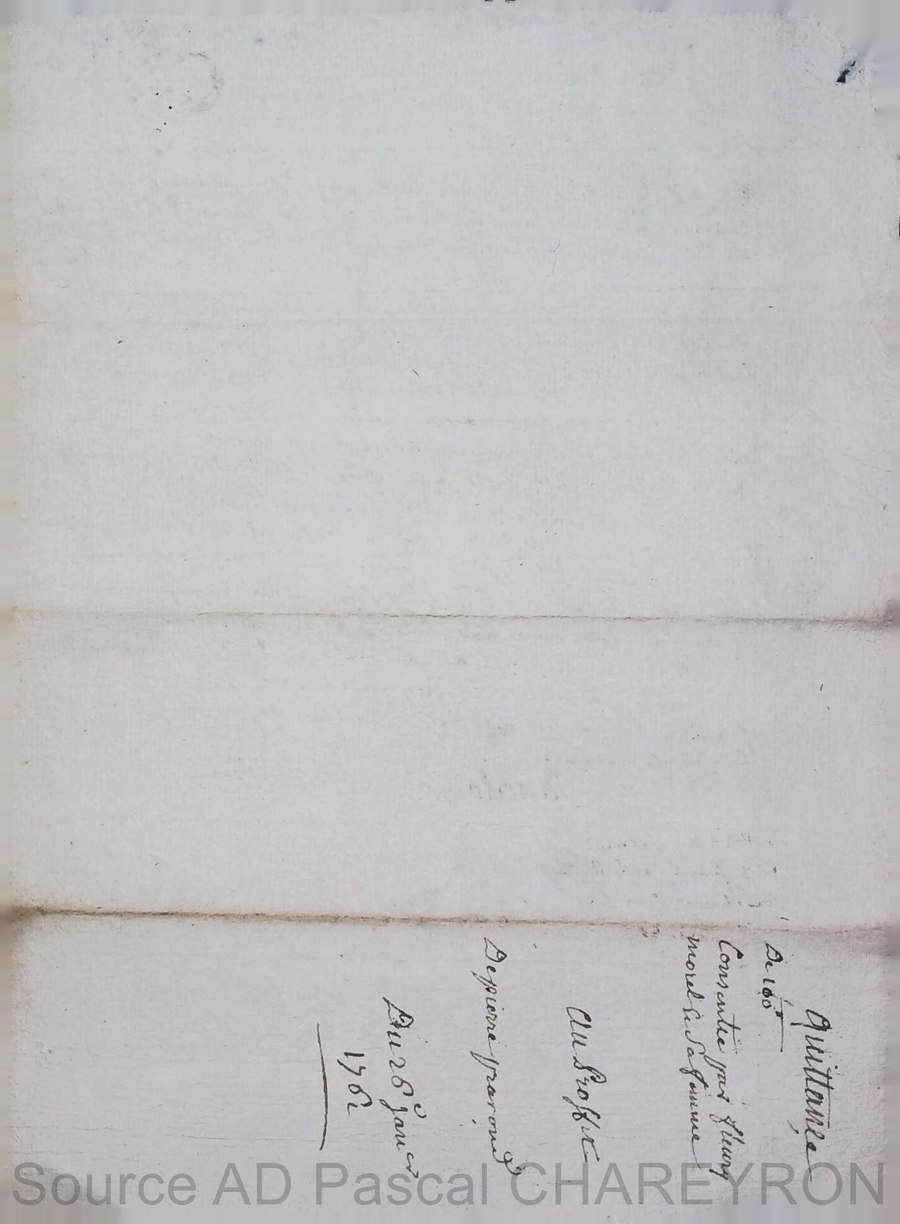 Quittance
De 160#
Consentie par fleury
morel & sa femme
Au Proffit
De pierre praroud
Du 26e Janer
1762
Source AD Pascal CHAREYRON